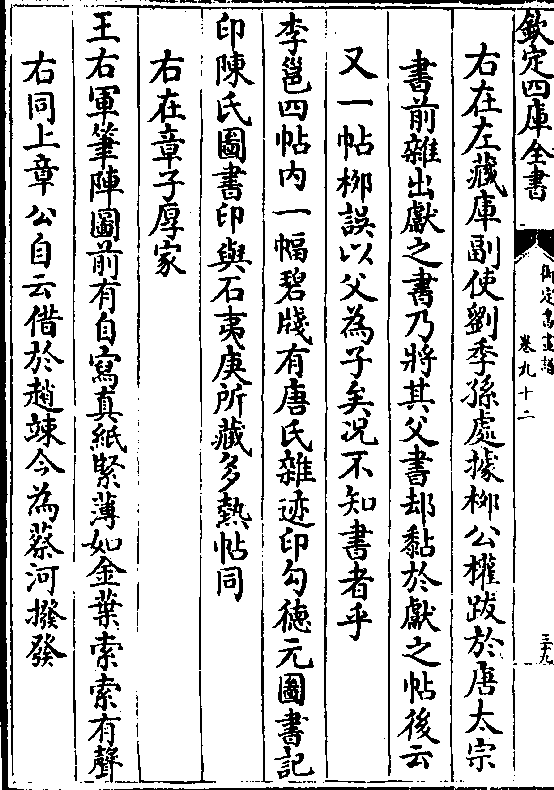 欽定四庫全書
御定書畫譜
卷九十二
三十九
右在左藏庫副使劉季孫處據栁公權跋於唐太宗
書前雜出獻之書乃將其父書却黏於獻之帖後云
又一帖栁誤以父為子矣况不知書者乎
李邕四帖内一幅碧牋有唐氏雜迹印勾徳元圖書記
印陳氏圖書印與石夷庚所藏多熱帖同
右在章子厚家
王右軍筆陣圖前有自寫真紙緊薄如金葉索索有聲
右同上章公自云借於趙竦今為蔡河撥發